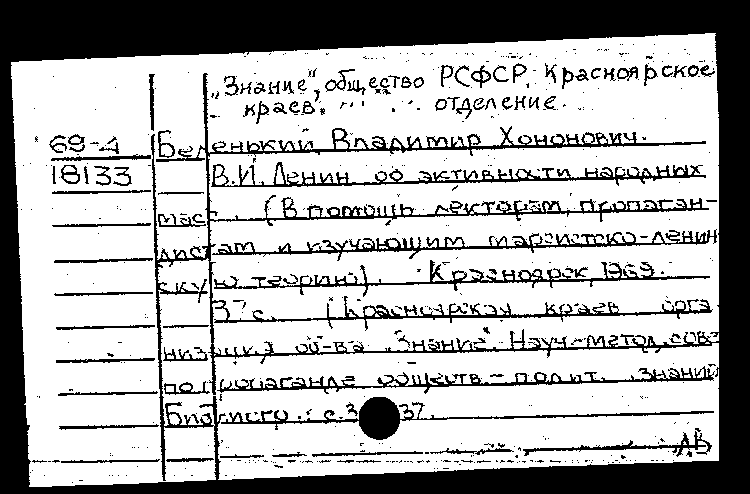 „Знание“, общество РСФСР. Красноярское
краев. отделение.
69-4 Беленький, Владимир Хононович.
18133 В.И. Ленин об активности народных
масс. (В помощь лекторам, пропаган-
дистам и изучающим марксистско-ленин
скую теорию). Красноярск, 1969.
37 с. (Красноярская краев. орга
низация об-ва „Знание“. Науч.-метод. сов-
по пропаганде обществ.-полит. знаний
Библиогр.: с.3 37.
АВ